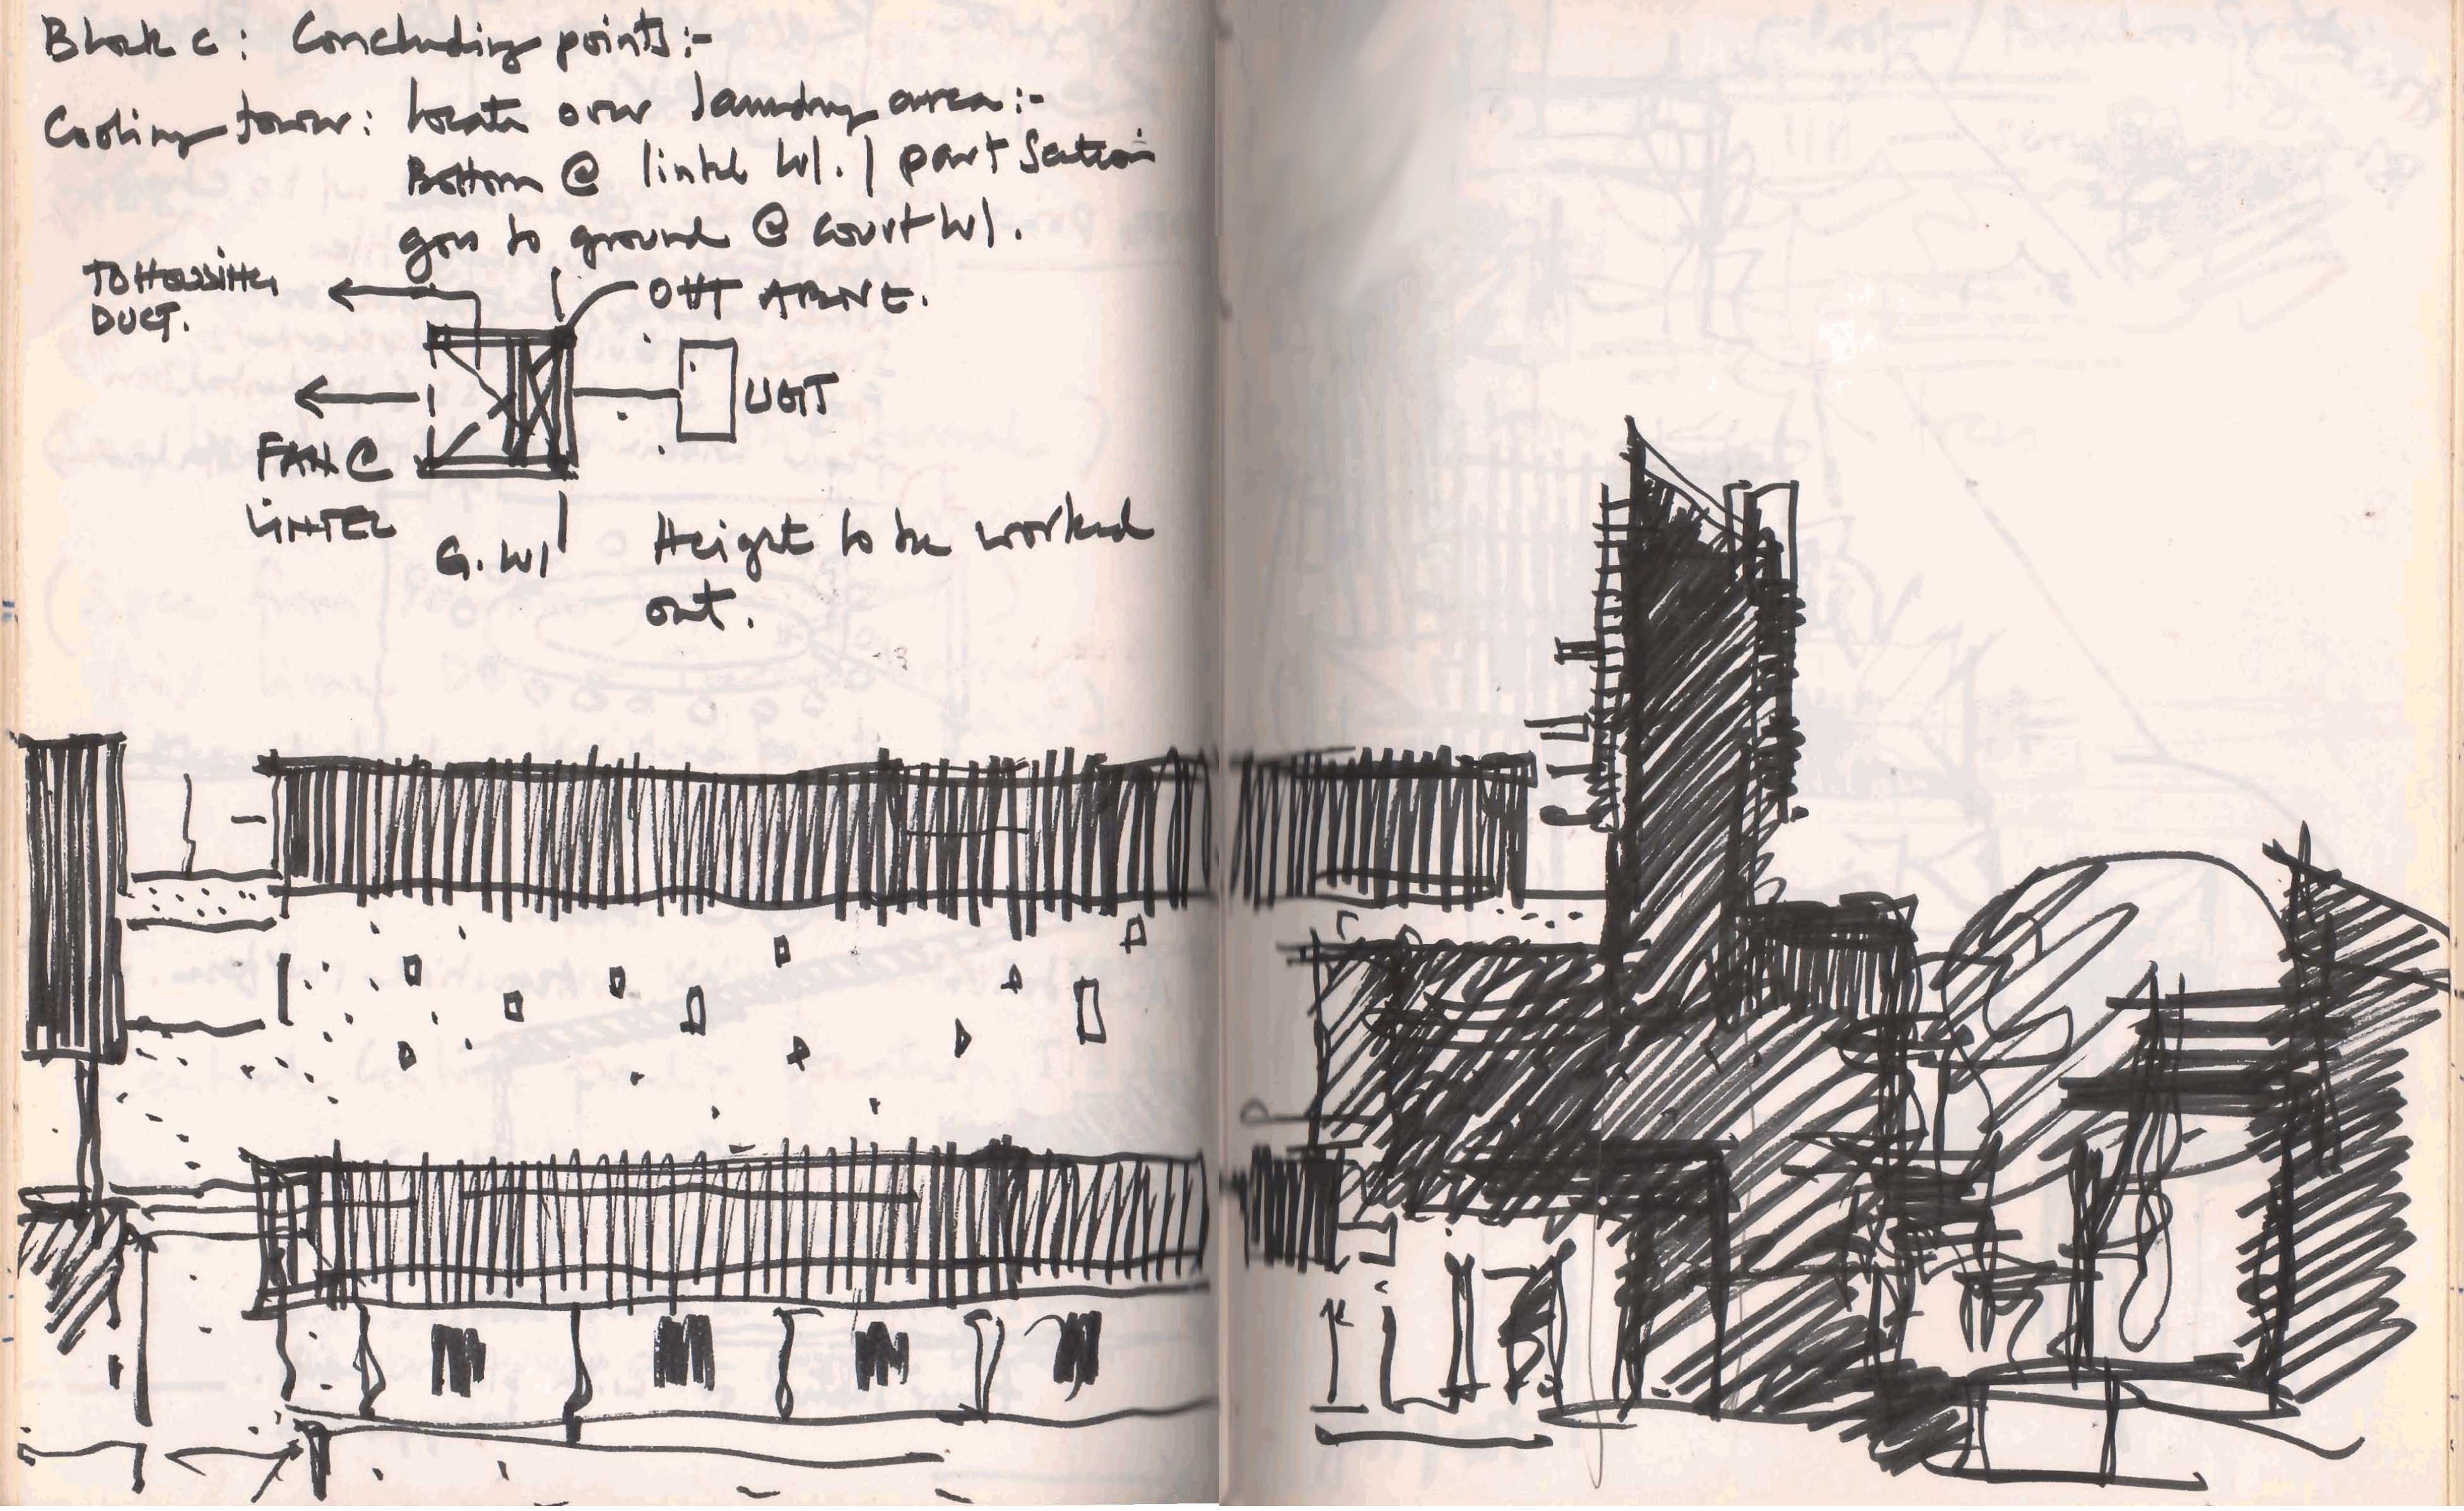 Block C: Concluding points:-
Cooling tower: Locate over laundry area:-
Bottom @ lintel lvl. / part section
goes to ground @ court lvl.
DUCT.
OUT ABOVE.
UGT
FAN @
LINTEL
G. lvl
Height to be worked
out.